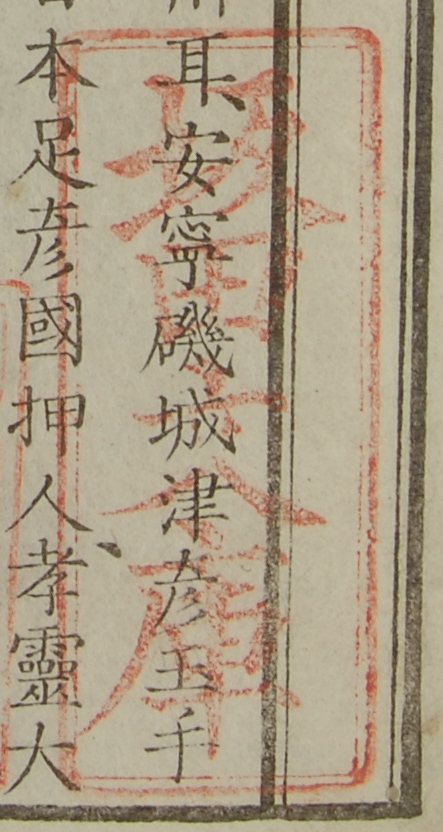 耳、安寧磯城津彦玉手
本足彦國押人、孝靈大